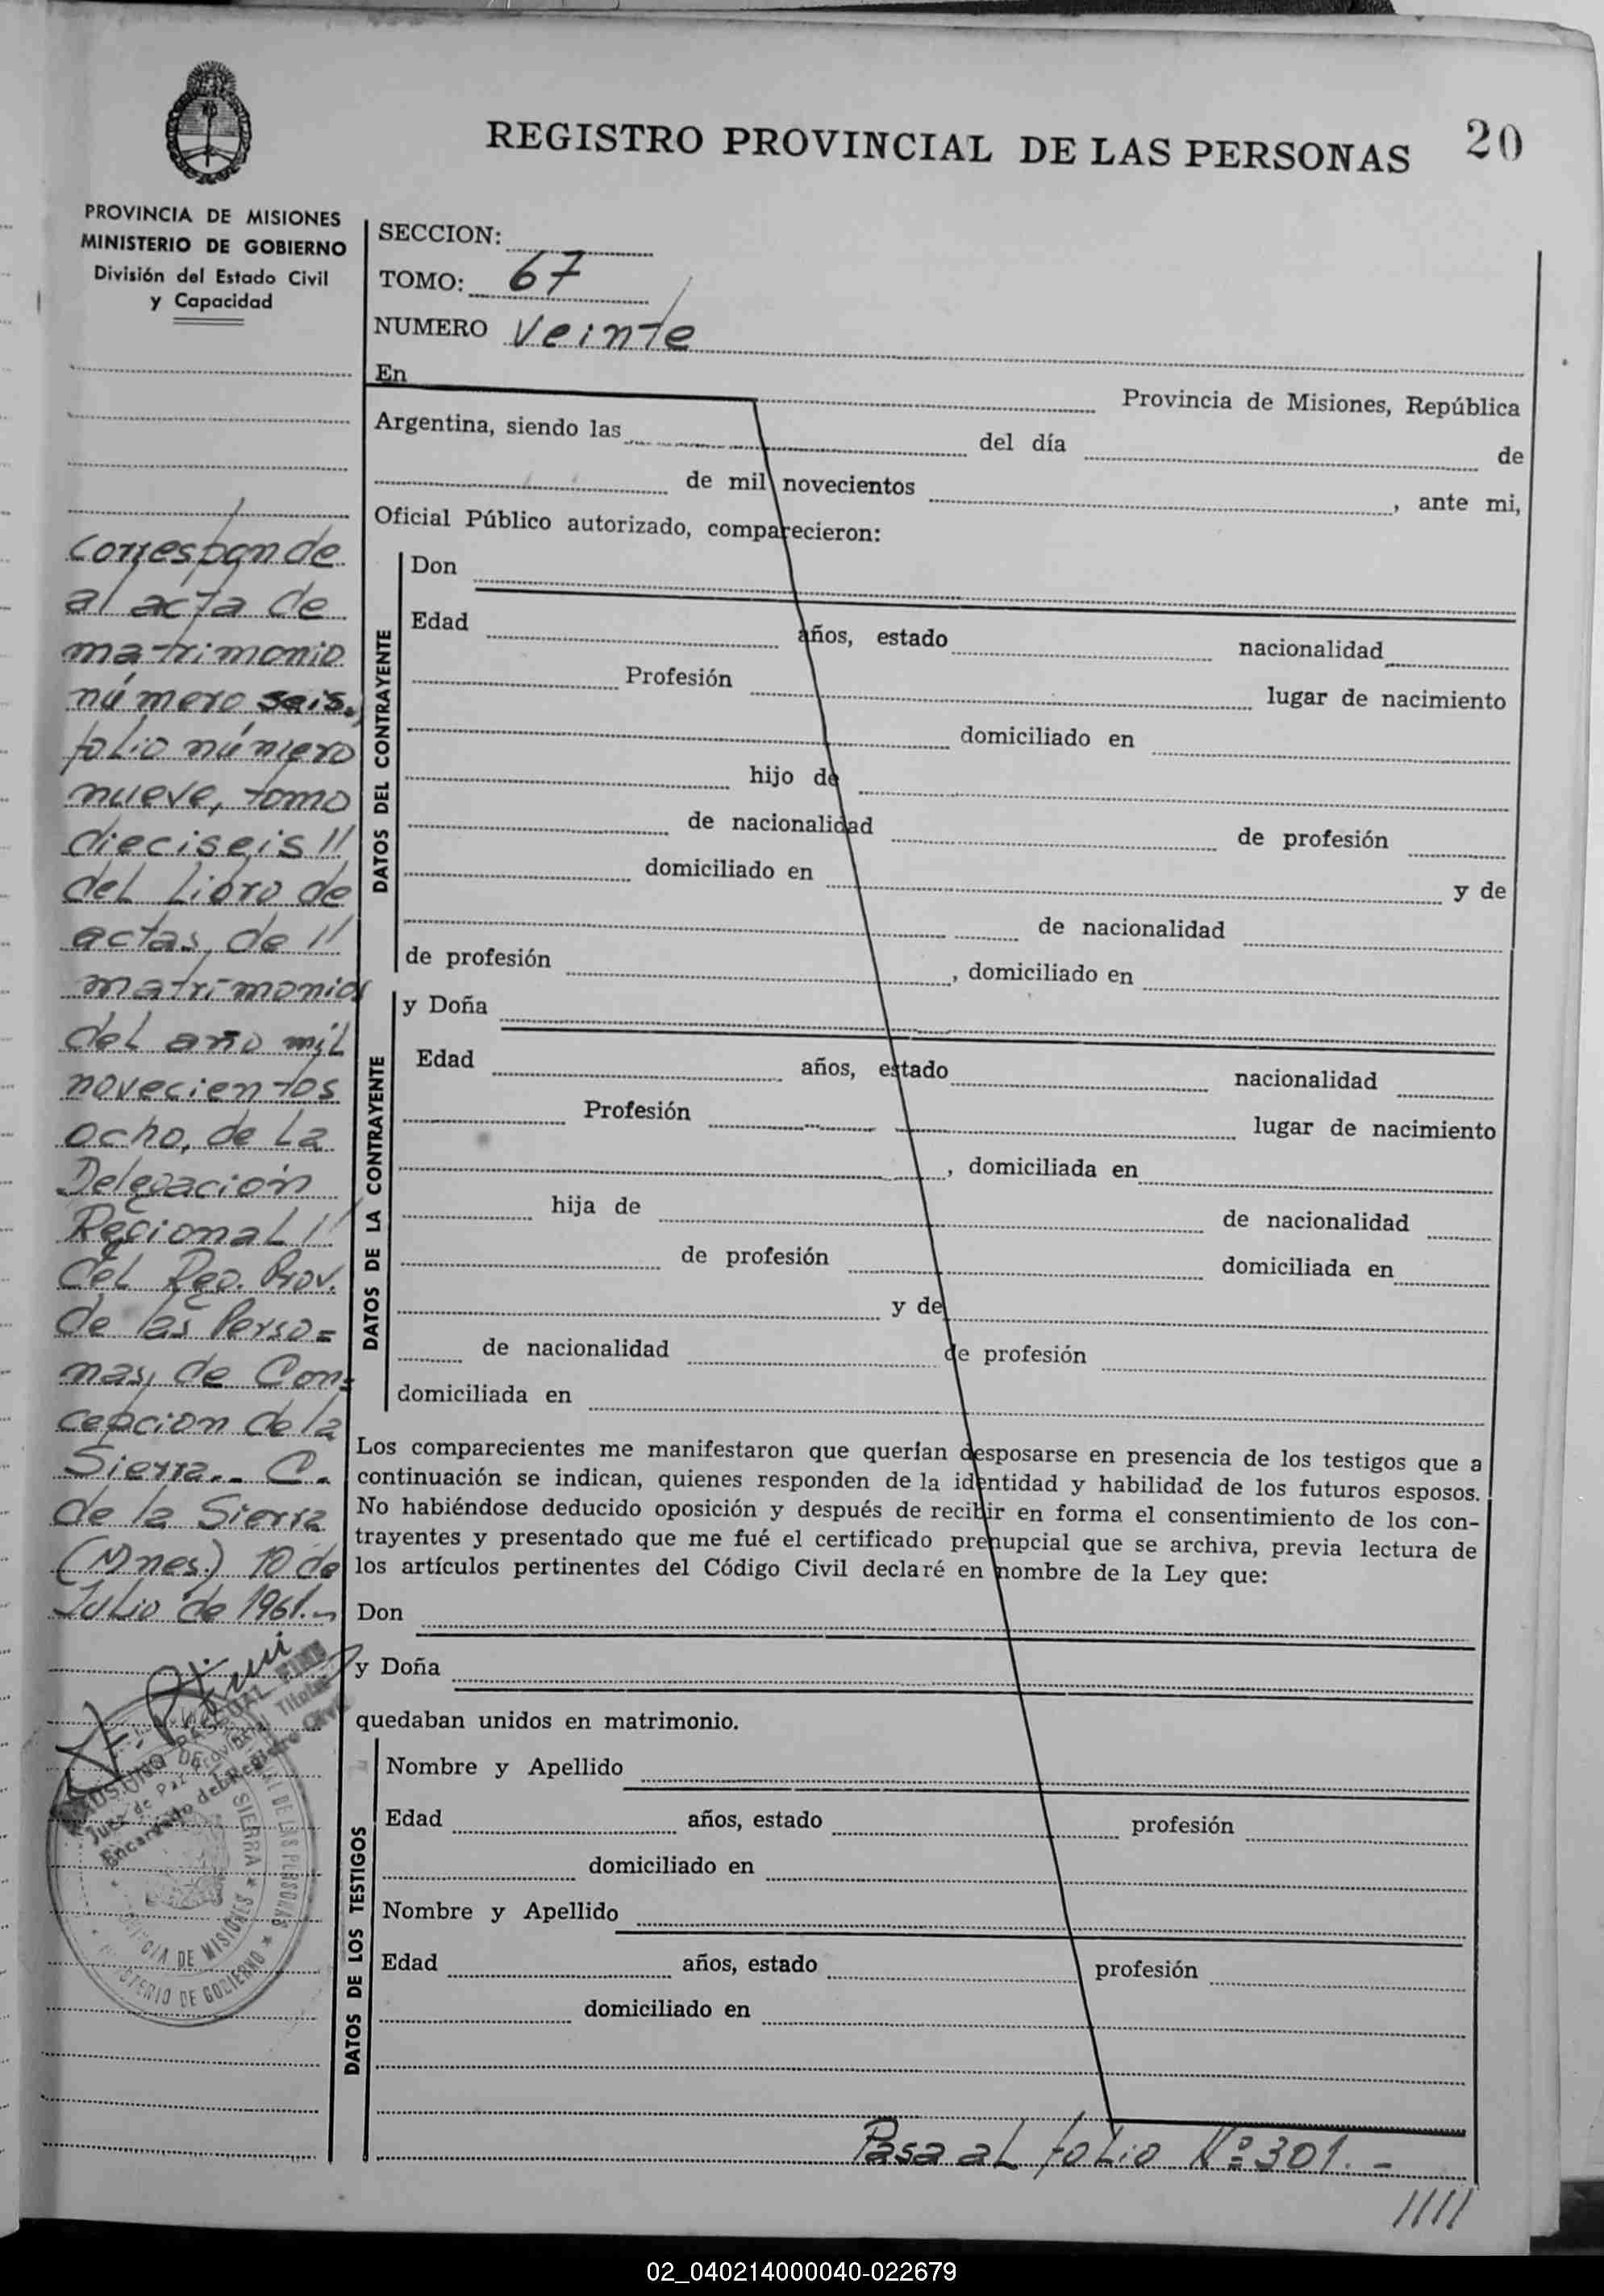 REGISTRO PROVINCIAL DE LAS PERSONAS
20
PROVINCIA DE MISIONES
MINISTERIO DE GOBIERNO
División del Estado Civil
y Capacidad
SECCION:
TOMO: 67
NUMERO Veinte
En Provincia de Misiones, República
Argentina, siendo las del día de
de mil novecientos , ante mi,
Oficial Público autorizado, comparecieron:
DATOS DEL CONTRAYENTE
Don
Edad años, estado nacionalidad
Profesión lugar de nacimiento
domiciliado en
hijo de
de nacionalidad de profesión
domiciliado en y de
de nacionalidad
de profesión , domiciliado en
DATOS DE LA CONTRAYENTE
y Doña
Edad años, estado nacionalidad
Profesión lugar de nacimiento
, domiciliada en
hija de de nacionalidad
de profesión domiciliada en
y de
de nacionalidad de profesión
domiciliada en
Los comparecientes me manifestaron que querían desposarse en presencia de los testigos que a
continuación se indican, quienes responden de la identidad y habilidad de los futuros esposos.
No habiéndose deducido oposición y después de recibir en forma el consentimiento de los con-
trayentes y presentado que me fué el certificado prenupcial que se archiva, previa lectura de
los artículos pertinentes del Código Civil declaré en nombre de la Ley que:
Don
y Doña
quedaban unidos en matrimonio.
DATOS DE LOS TESTIGOS
Nombre y Apellido
Edad años, estado profesión
domiciliado en
Nombre y Apellido
Edad años, estado profesión
domiciliado en
Pasa al folio Nº 301.-
////
Corresponde
al acta de
matrimonio
número seis.
folio número
nueve, tomo
dieciseis //
del Libro de
actas de //
matrimonios
del año mil
novecientos
ocho, de La
Delegación
Regional //
del Reg. Prov.
de las Perso=
nas, de Con=
cepcion de la
Sierra.- C.
de la Sierra
(Mnes.) 10 de
Julio de 1961.-
PASCUAL
Juez de Paz Provincial Titular
Encargado del Registro Civil
DE LAS PERSONAS
SIERRA
DE MISIONES
DE GOBIERNO
02_040214000040-022679